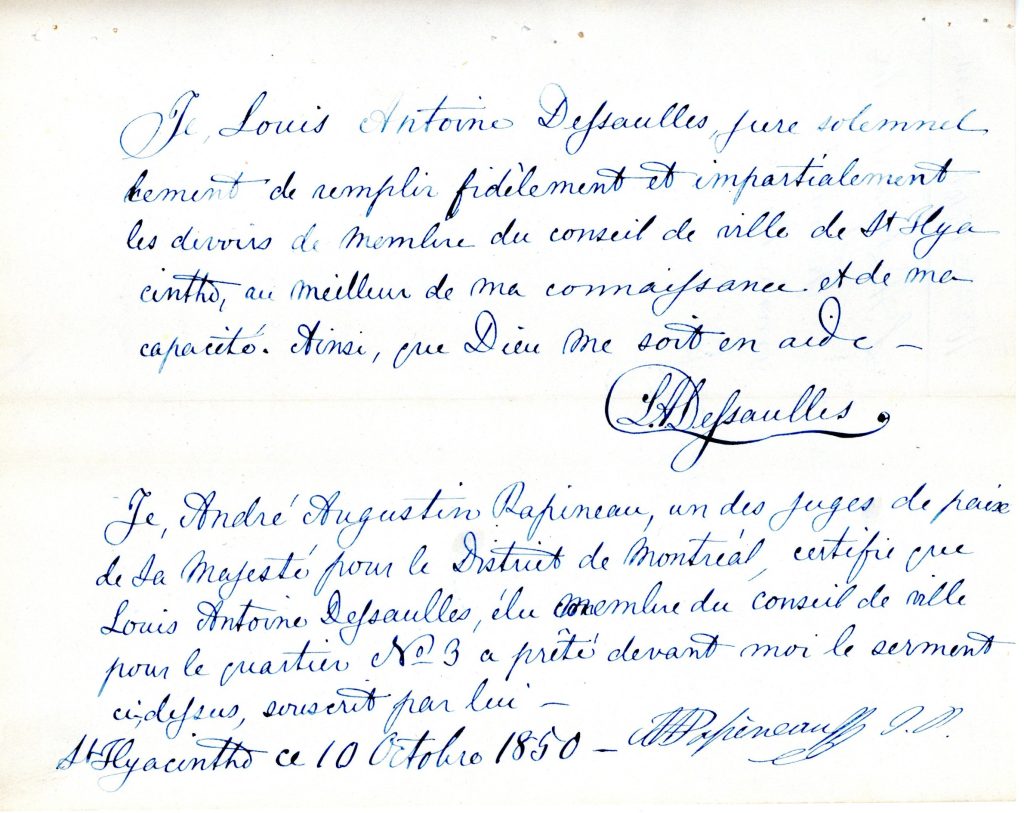 Je, Louis Antoine Dessaulles, jure solemnel
lement de remplir fidèlement et impartialement
les devoirs de membre du conseil de ville de St Hya
cinthe, au meilleur de ma connaissance et de ma
capacité. Ainsi, que Dieu me soit en aide —
L.A. Dessaulles.
Je, André Augustin Papineau, un des juges de paix
de Sa Majesté pour le District de Montréal, certifie que
Louis Antoine Dessaulles, élu membre du conseil de ville
pour le quartier No 3 a prêté devant moi le serment
ci-dessus, souscrit par lui —
St Hyacinthe ce 10 Octobre 1850 — AA Papineau J.P.